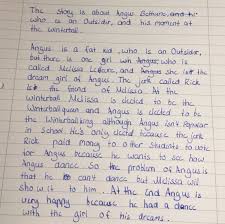 The story is about Angus Bethune
who is an Outsider, and his moment at
the winterball.
Angus is a fat kid, who is an Outsider,
but there is one girl win Angus, who is
called Melissa Lefevre, and she is the
dream girl of Angus. The jerk called Rick
is the friend of Melissa. At the
Winterball Melissa is elected to be the
Winterballqueen and Angus is elected to be
the Winterballking, although Angus isn't popular
in School. He's only elected because the jerk
Rick paid money to other students to vote
for Angus because he wants to see how
Angus dance. So the problem of Angus is
that he can't dance but Melissa will
show it to him. At the End Angus is
very happy because he had a dance
with the girl of his dreams.